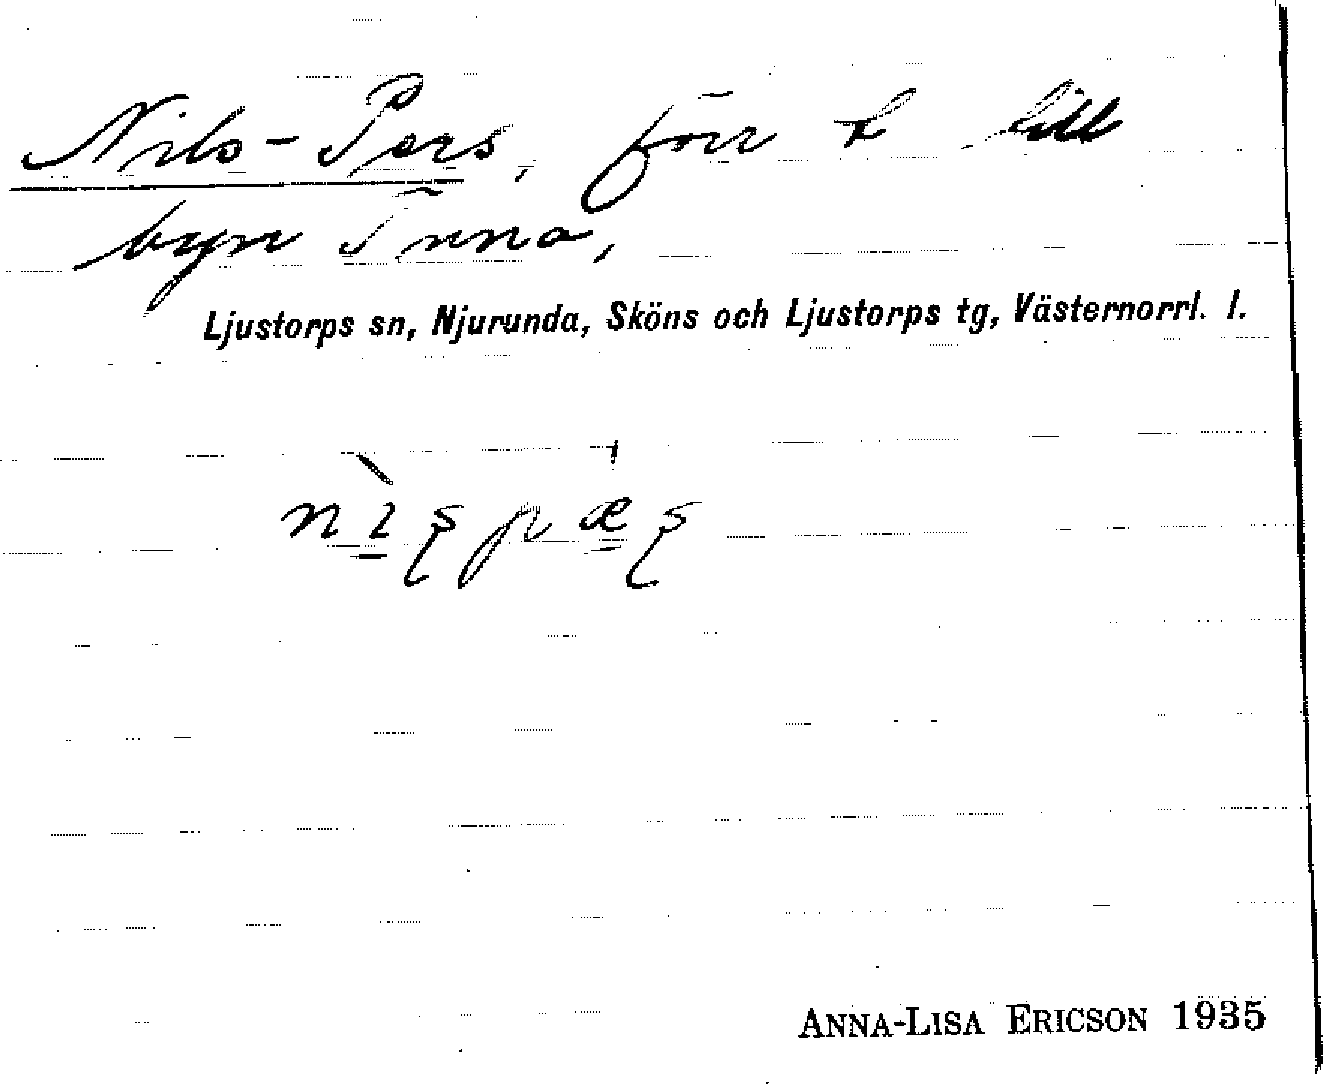 Nils-Pers, förr h till
byn Tunna,
Ljustorps sn, Njurunda, Sköns och Ljustorps tg, Västernorrl. l.
ANNA-LISA ERICSON 1935